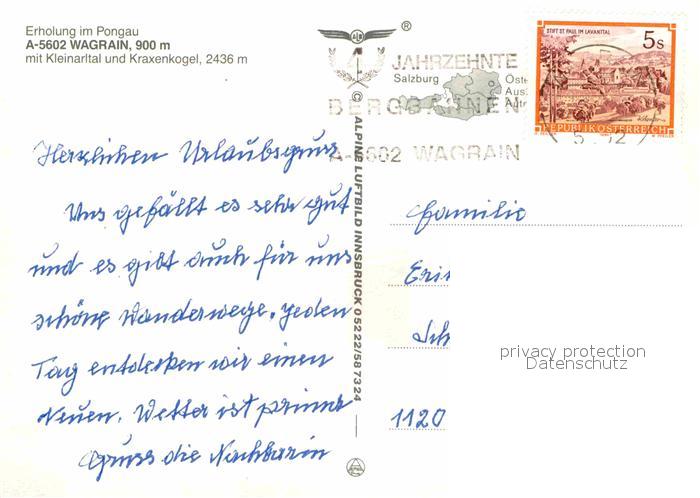 Erholung im Pongau
A-5602 WAGRAIN, 900 m
mit Kleinarltal und Kraxenkogel, 2436 m
®
4 JAHRZEHNTE
Salzburg
BERGBAHNEN
A-5602 WAGRAIN
STIFT ST. PAUL IM LAVANTTAL
5s
REPUBLIK ÖSTERREICH
© ALPINE LUFTBILD INNSBRUCK 05222/587324
Herzlichen Urlaubsgruss
Uns gefällt es sehr gut
und es gibt auch für uns
schöne Wanderwege. Jeden
Tag entdecken wir einen
Neuen. Wetter ist prima
Gruss die Nachbarin
Familie
1120
privacy protection
Datenschutz